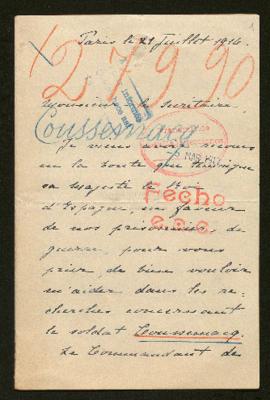 Paris le 21 Juillet 1916.
279 90
Monsieur le Secrétaire.
Coussemacq
Je viens avoir recours
en la bonté que témoigne
sa Majesté le Roi
d'Espagne, en faveur
de nos prisonniers de
guerre, pour vous
prier, de bien vouloir
m'aider dans les re-
cherches concernant
le soldat Coussemacq.
Le Commandant de
Fecho
e.c.c.